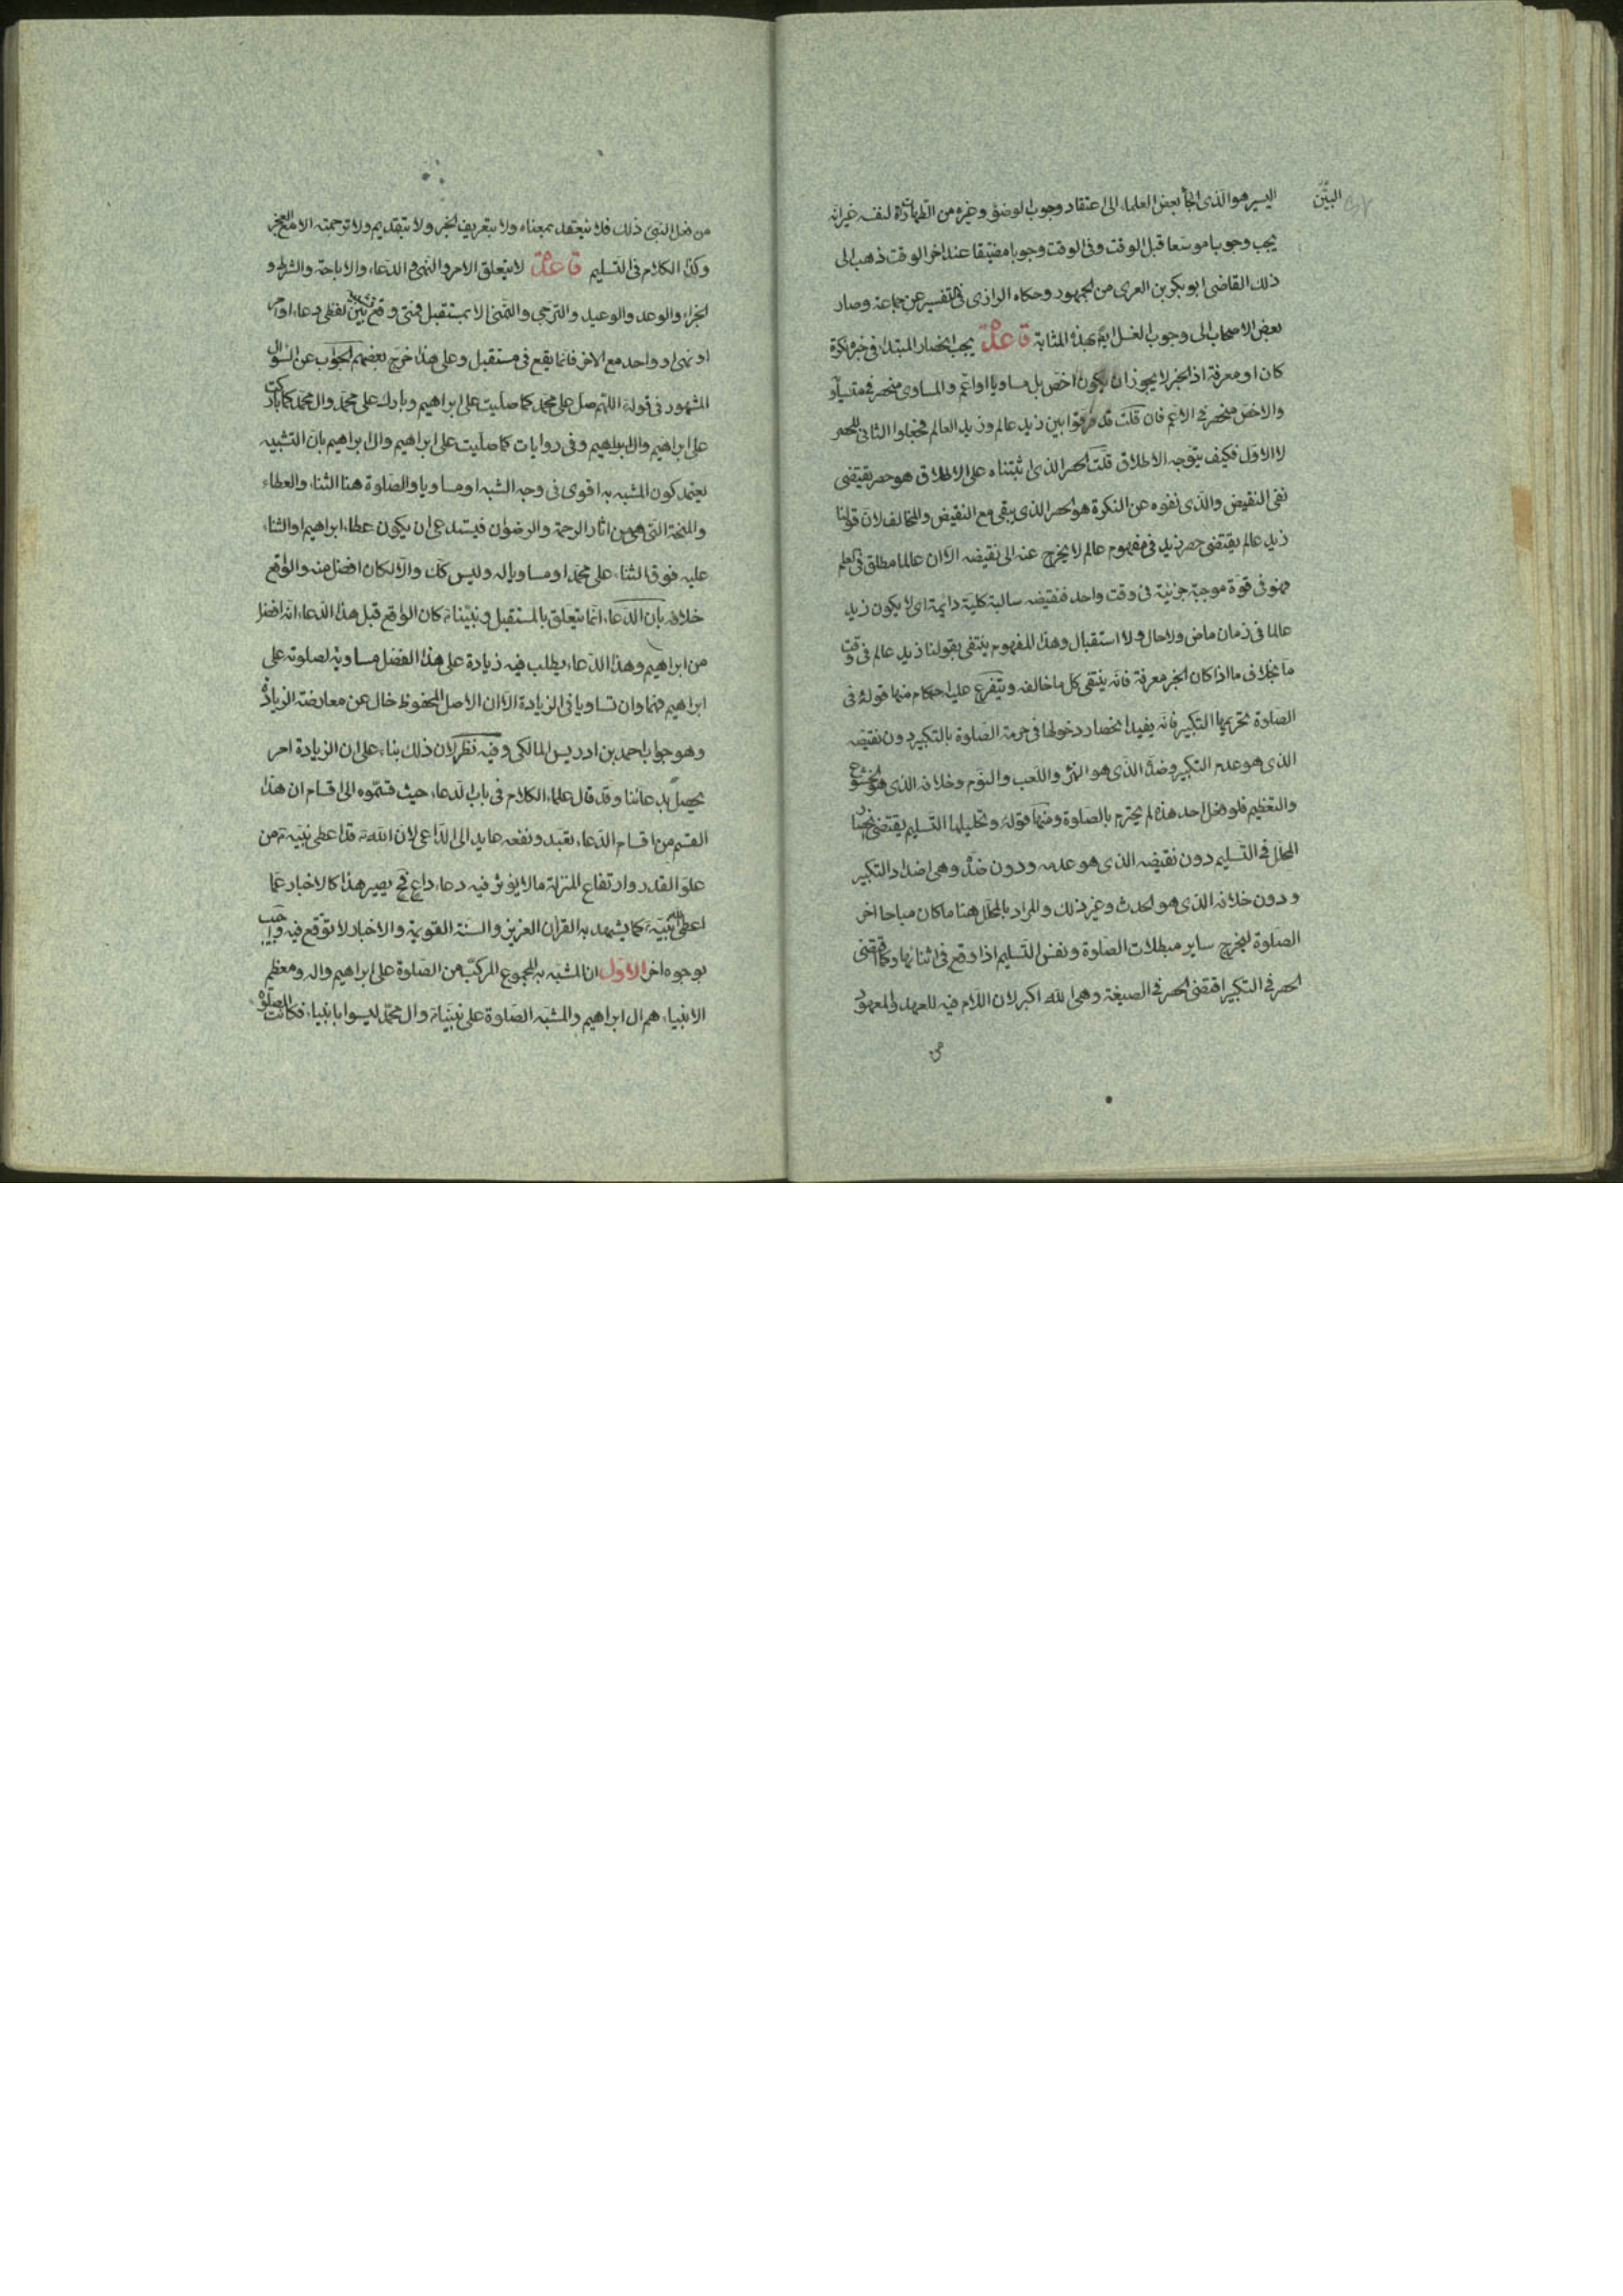 البيّن
اليسير هو الذى الجأ بعض العلماء الى اعتقاد وجوب الوضوء وغيره من الطهارات لنفسه غير انه
يجب وجوبا موسعا قبل الوقت وفى الوقت وجوبا مضيقا عند اخر الوقت ذهب الى
ذلك القاضى ابو بكر بن العربى من الجمهور وحكاه الرازى فى التفسير عن جماعة وصار
بعض الاصحاب الى وجوب الغسل بهذه المثابة قاعدة يجب انحصار المبتداء فى خبره نكرة
كان او معرفة اذ الخبر لا يجوز ان يكون اخص بل مساويا او اعم والمساوى منحصر فى مساويه
والاخص منحصر فى الاعم فان قلت قد فرقوا بين زيد عالم وزيد العالم فجعلوا الثانى للحصر
لا الاول فكيف يتوجه الاطلاق قلت الحصر الذى اثبتناه على الاطلاق هو حصر يقتضى
نفى النقيض والذى نفوه عن النكرة هو الحصر الذى يبقى مع النقيض والمخالف لان قولنا
زيد عالم يقتضى حصر زيد فى مفهوم عالم لا يخرج عنه الى نقيضه الا ان عالما مطلق فى العلم
فهو فى قوة موجبة جزئية فى وقت واحد فنقيضه سالبة كلية دايمة اى لا يكون زيد
عالما فى زمان ماض ولا حال ولا استقبال وهذا المفهوم ينتفى بقولنا زيد عالم فى وقت
ما بخلاف ما اذا كان الخبر معرفة فانه ينتفى كل ما خالفه ويتفرع عليه احكام منها قوله فى
الصلوة تحريمها التكبير فانه يفيد انحصار دخولها فى حرمة الصلوة بالتكبير دون نقيضه
الذى هو عدم التكبير وضده الذى هو الهزل واللعب والنوم وخلافه الذى هو الخشوع
والتعظيم فلو فعل احد هذه لم يحترم بالصلوة ومنها قوله وتحليلها التسليم يقتضى انحصار
المحلل فى التسليم دون نقيضه الذى هو عدمه ودون ضده وهى اضداد التكبير
ودون خلافه الذى هو الحدث وغير ذلك والمراد بالمحلل هنا ما كان مباحا اخر
الصلوة ليخرج ساير مبطلات الصلوة ونفس التسليم اذا وقع فى اثنائها وكما اقتضى
الحصر فى التكبير اقتضى الحصر فى الصيغة وهى الله اكبر لان اللام فيه للعهد والمعهود
من فعل النبى ذلك فلا ينعقد بمعناه ولا بتعريف الخبر ولا بتقديم ولا ترجمته الا مع العجز
وكذا الكلام فى التسليم قاعدة لا يتعلق الامر والنهى والدعاء والاباحة والشرط و
الجزاء والوعد والوعيد والترجى والتمنى الا بمستقبل فمتى وقع تشبيه بين لفظى دعاء او امر
او نهى او واحد مع الاخر فانما يقع فى مستقبل وعلى هذا خرج بعضهم الجواب عن السؤال
المشهور فى قوله اللهم صل على محمد كما صليت على ابراهيم وبارك على محمد وال محمد كما باركت
على ابراهيم وال ابراهيم وفى روايات كما صليت على ابراهيم وال ابراهيم بان التشبيه
يعتمد كون المشبه به اقوى فى وجه الشبه او مساويا والصلوة هنا الثناء والعطاء
والمنحة التى هى من اثار الرحمة والرضوان فيستدعى ان يكون عطاء ابراهيم او الثناء
عليه فوق الثناء على محمد او مساويا له وليس كك والا لكان افضل منه والواقع
خلافه بان الدعاء انما يتعلق بالمستقبل ونبينا كان الواقع قبل هذا الدعاء انه افضل
من ابراهيم وهذا الدعاء يطلب فيه زيادة على هذا الفضل مساوية لصلوته على
ابراهيم فهما وان تساويا فى الزيادة الا ان الاصل المحفوظ خال عن معارضة الزيادة
وهو جواب احمد بن ادريس المالكى وفيه نظر لان ذلك بناء على ان الزيادة امر
يحصل بدعائنا وقد قال علماء الكلام فى باب الدعاء حيث قسموه الى اقسام ان هذا
القسم من اقسام الدعاء تعبد ونفعه عايد الى الداعى لان الله تع قد اعطى نبيه من
علو القدر وارتفاع المنزلة ما لا يؤثر فيه دعاء داع فح يصير هذا كالاخبار عما
اعطى الله نبيه كما يشهد به القرآن العزيز والسنة القويمة والاخبار لا توقع فيه واجيب
بوجوه اخر الاول ان المشبه به المجموع المركب من الصلوة على ابراهيم واله ومعظم
الانبياء هم ال ابراهيم والمشبه الصلوة على نبينا وال محمد ليسوا بانبياء فكانت الصلوة